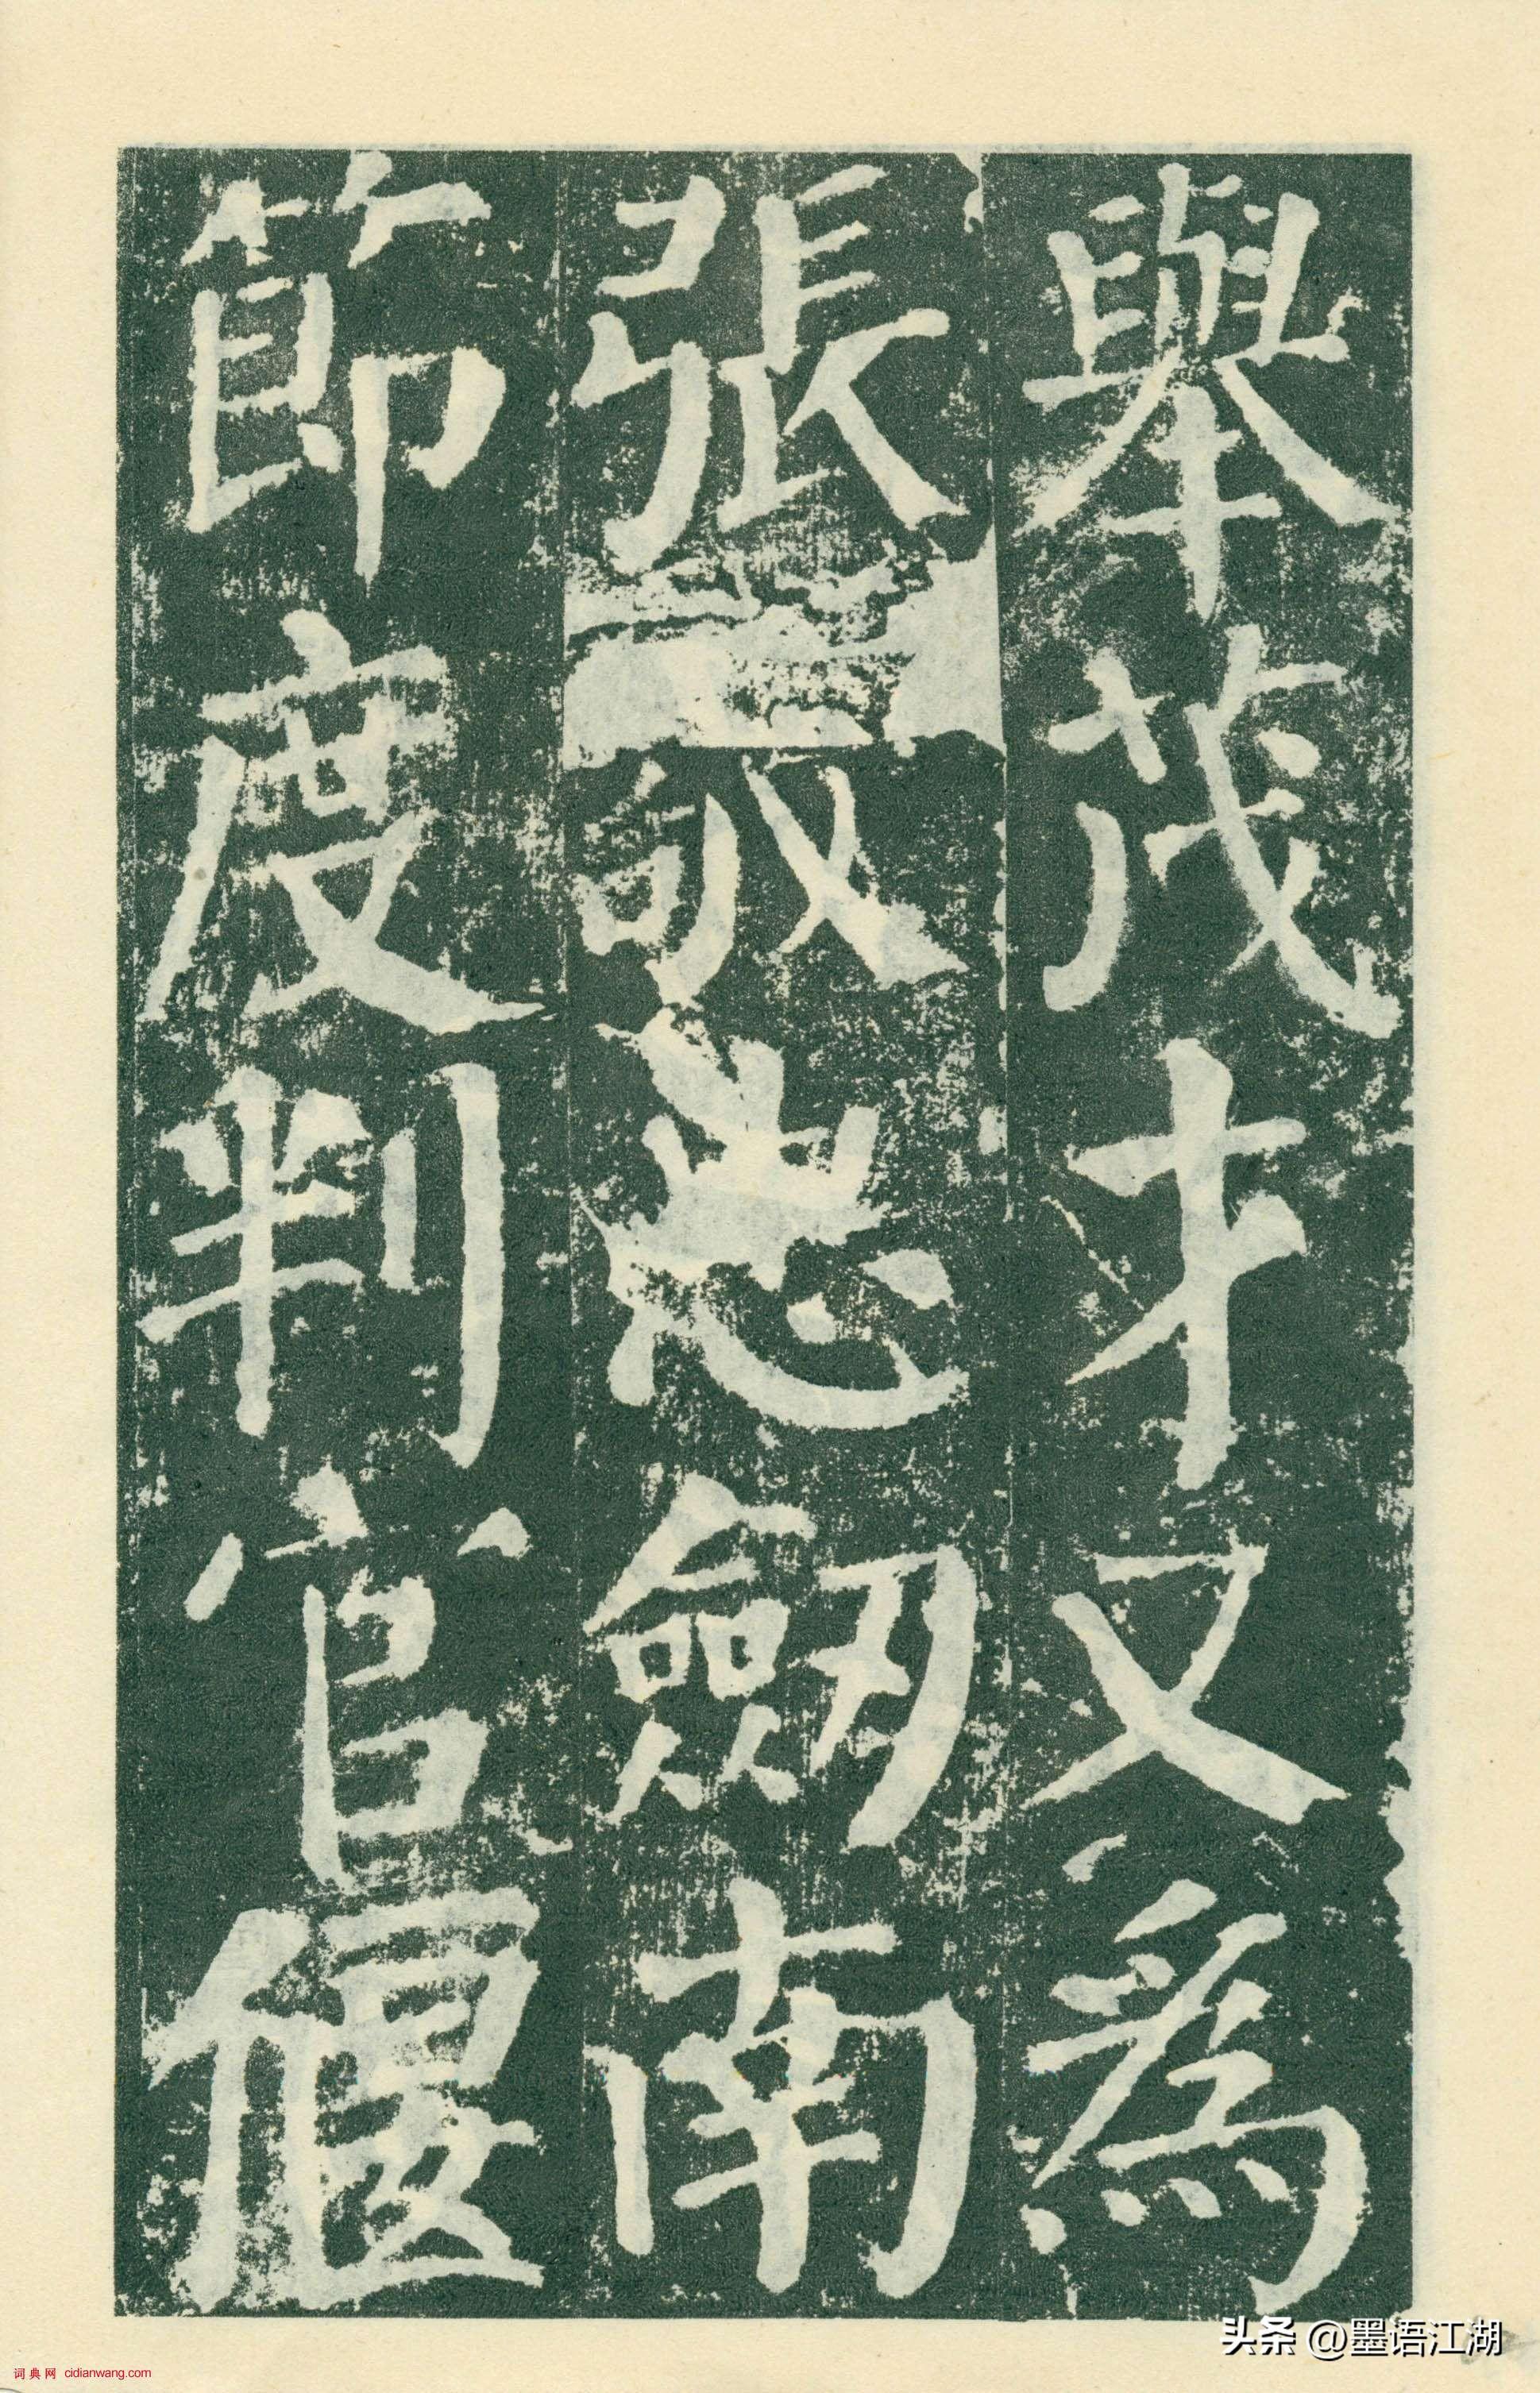 舉茂才又爲
張敬忠劒南
節度判官偃
头条 @墨语江湖
词典网 cidianwang.com